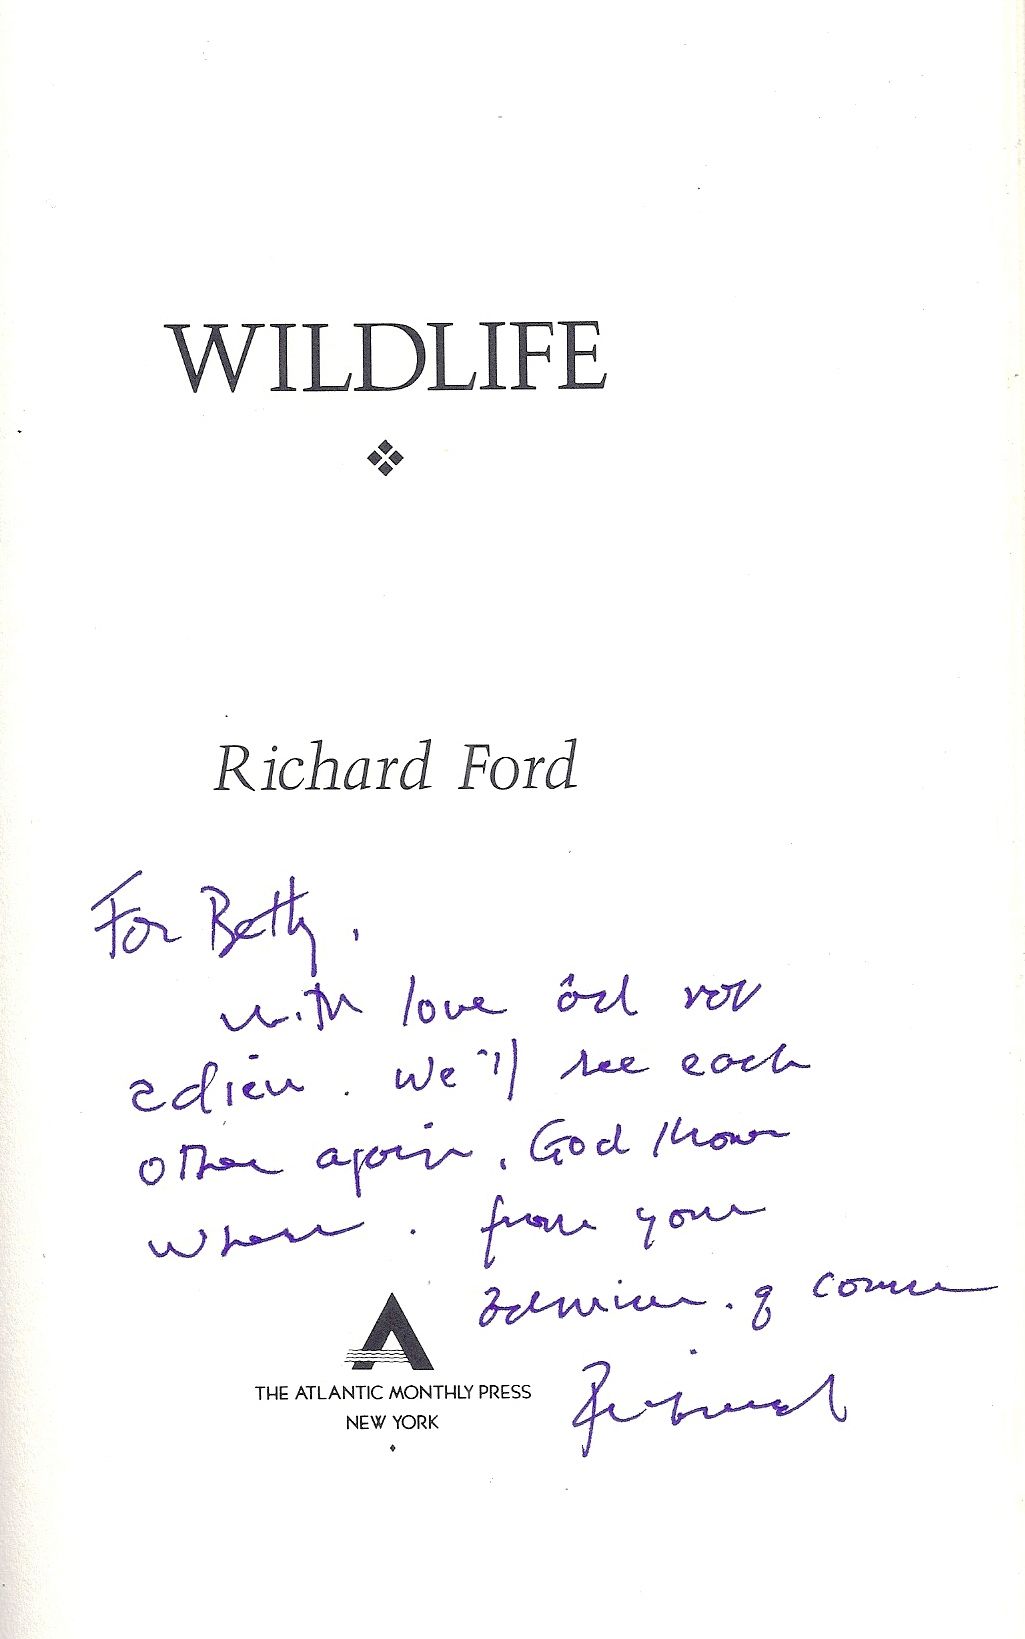 WILDLIFE
Richard Ford
For Betty,
with love and not
adieu. We'll see each
other again, God knows
where. from your
admirer, of course
Richard
THE ATLANTIC MONTHLY PRESS
NEW YORK